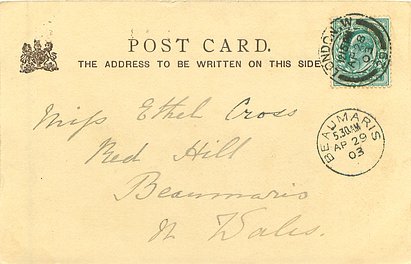 POST CARD.
THE ADDRESS TO BE WRITTEN ON THIS SIDE
LONDON. W
AP 28
03
BEAUMARIS
5.30AM
AP 29
03
Miss Ethel Cross
Red Hill
Beaumaris
N Wales.